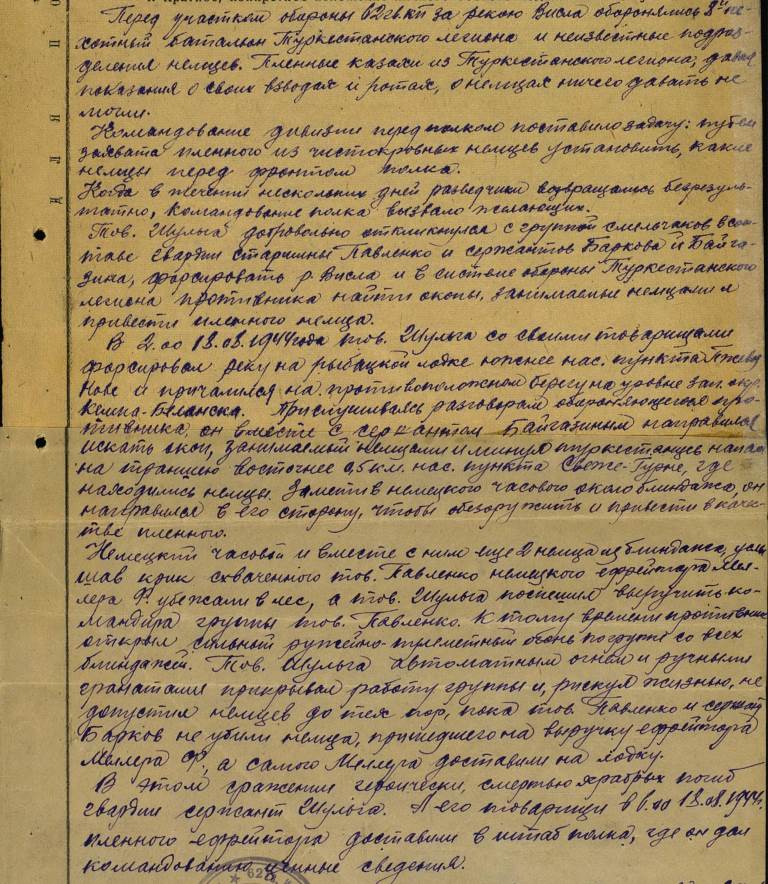 Перед участком обороны 62 гв. КП за рекою Висла оборонялись 8й пе-
хотный батальон Туркестанского легиона и неизвестные подраз-
деления немцев. Пленные казахи из Туркестанского легиона, давая
показания о своих взводах и ротах, о немцах ничего давать не
могли.
Командование дивизии перед полком поставило задачу: путем
захвата пленного из чистокровных немцев установить, какие
немцы перед фронтом полка.
Когда в течении нескольких дней разведчики возвращались безрезуль-
татно, командование полка вызвало желающих.
Тов. Шульга добровольно откликнулся с группой смельчаков в сос-
таве гвардии старшины Павленко и сержантов Баркова и Байга-
зина, форсировать р. Висла и в системе обороны Туркестанского
легиона противника найти окопы, занимаемые немцами и
привести пленного немца.
В 2.00 18.08.1944 года тов. Шульга со своими товарищами
форсировал реку на рыбацкой лодке южнее нас. пункта
и причалился на противоположном берегу на уровне зап. окр.
Прислушиваясь разговорам обороняющегося про-
тивника, он вместе с сержантом Байгазиным направился
искать окоп, занимаемый немцами и минуя туркестанцев напал
на траншею восточнее 0,5 км. нас. пункта Свеже-Гурне, где
находились немцы. Заметив немецкого часового около блиндажа, он
направился в его сторону, чтобы обезоружить и привести в качес-
тве пленного.
Немецкий часовой и вместе с ним еще 2 немца из блиндажа, услы
шав крик схваченного тов. Павленко немецкого ефрейтора Мел-
лера Ф. убежали в лес, а тов. Шульга поспешил выручить ко-
мандира группы тов. Павленко. К тому времени противник
открыл сильный ружейно-пулеметный огонь по группе со всех
блиндажей. Тов. Шульга автоматным огнем и ручными
гранатами прикрывал работу группы и, рискуя жизнью, не
допустил немцев до тех пор, пока тов. Павленко и сержант
Барков не убили немца, пришедшего на выручку ефрейтора
Меллера Ф., а самого Меллера доставили на лодку.
В этом сражении героически, смертью храбрых погиб
гвардии сержант Шульга. А его товарищи в 6.00 18.08.1944г.
пленного ефрейтора доставили в штаб полка, где он дал
командованию ценные сведения.